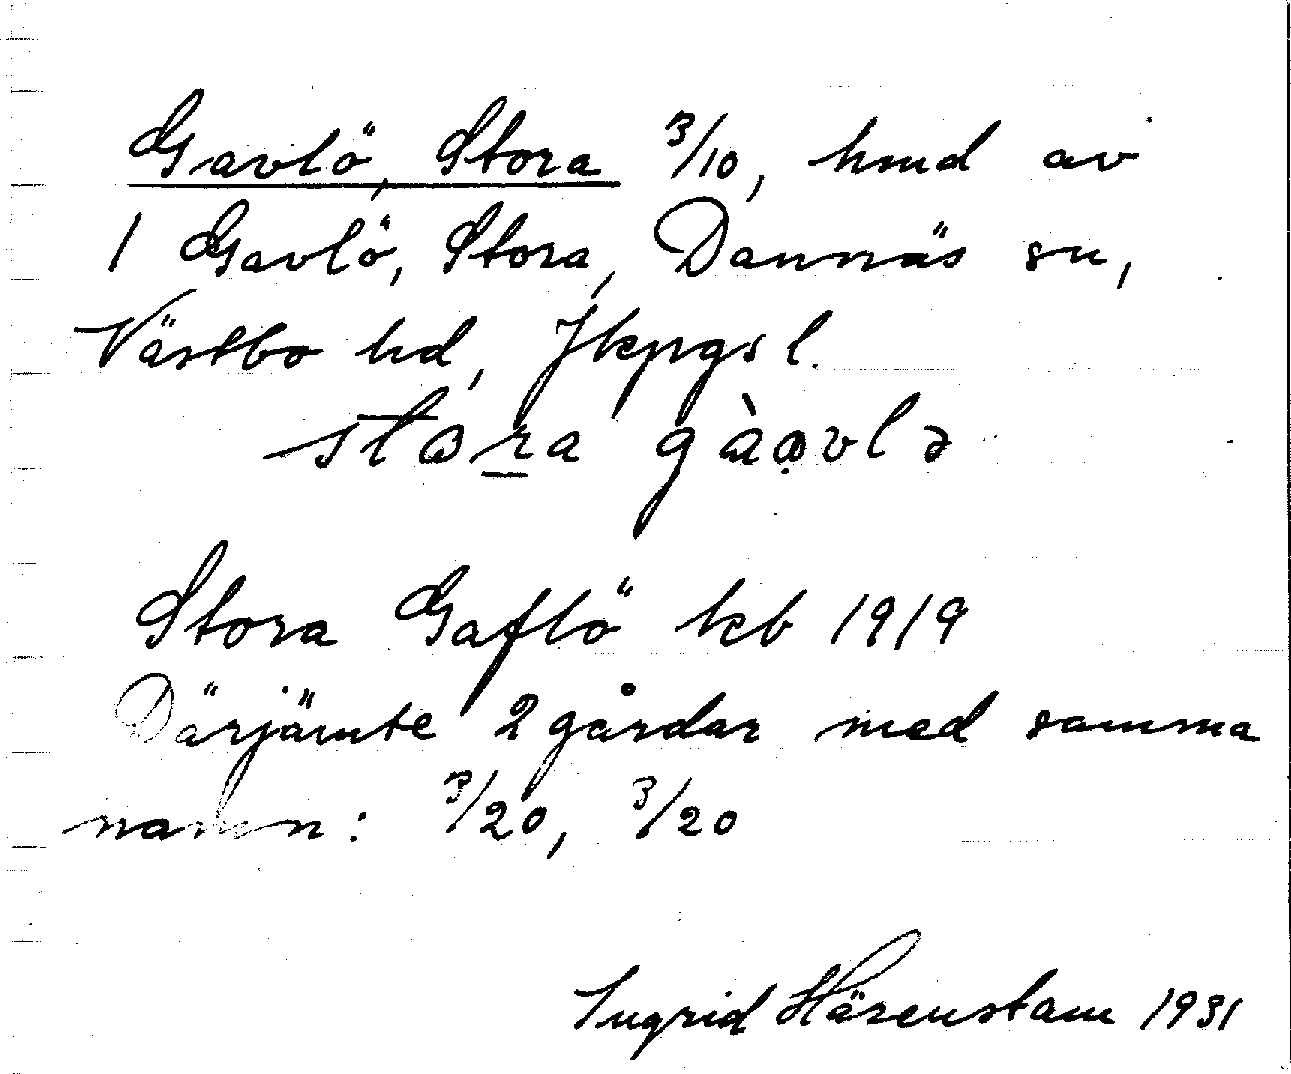 Gavlö, Stora 3/10, hmd av
1 Gavlö, Stora, Dannäs sn,
Västbo hd, Jkpgs l.
stɷra gàꜵvlə
Stora Gaflö kb 1919
Därjämte 2 gårdar med samma
namn: 3/20, 3/20
Ingrid Härenstam 1931